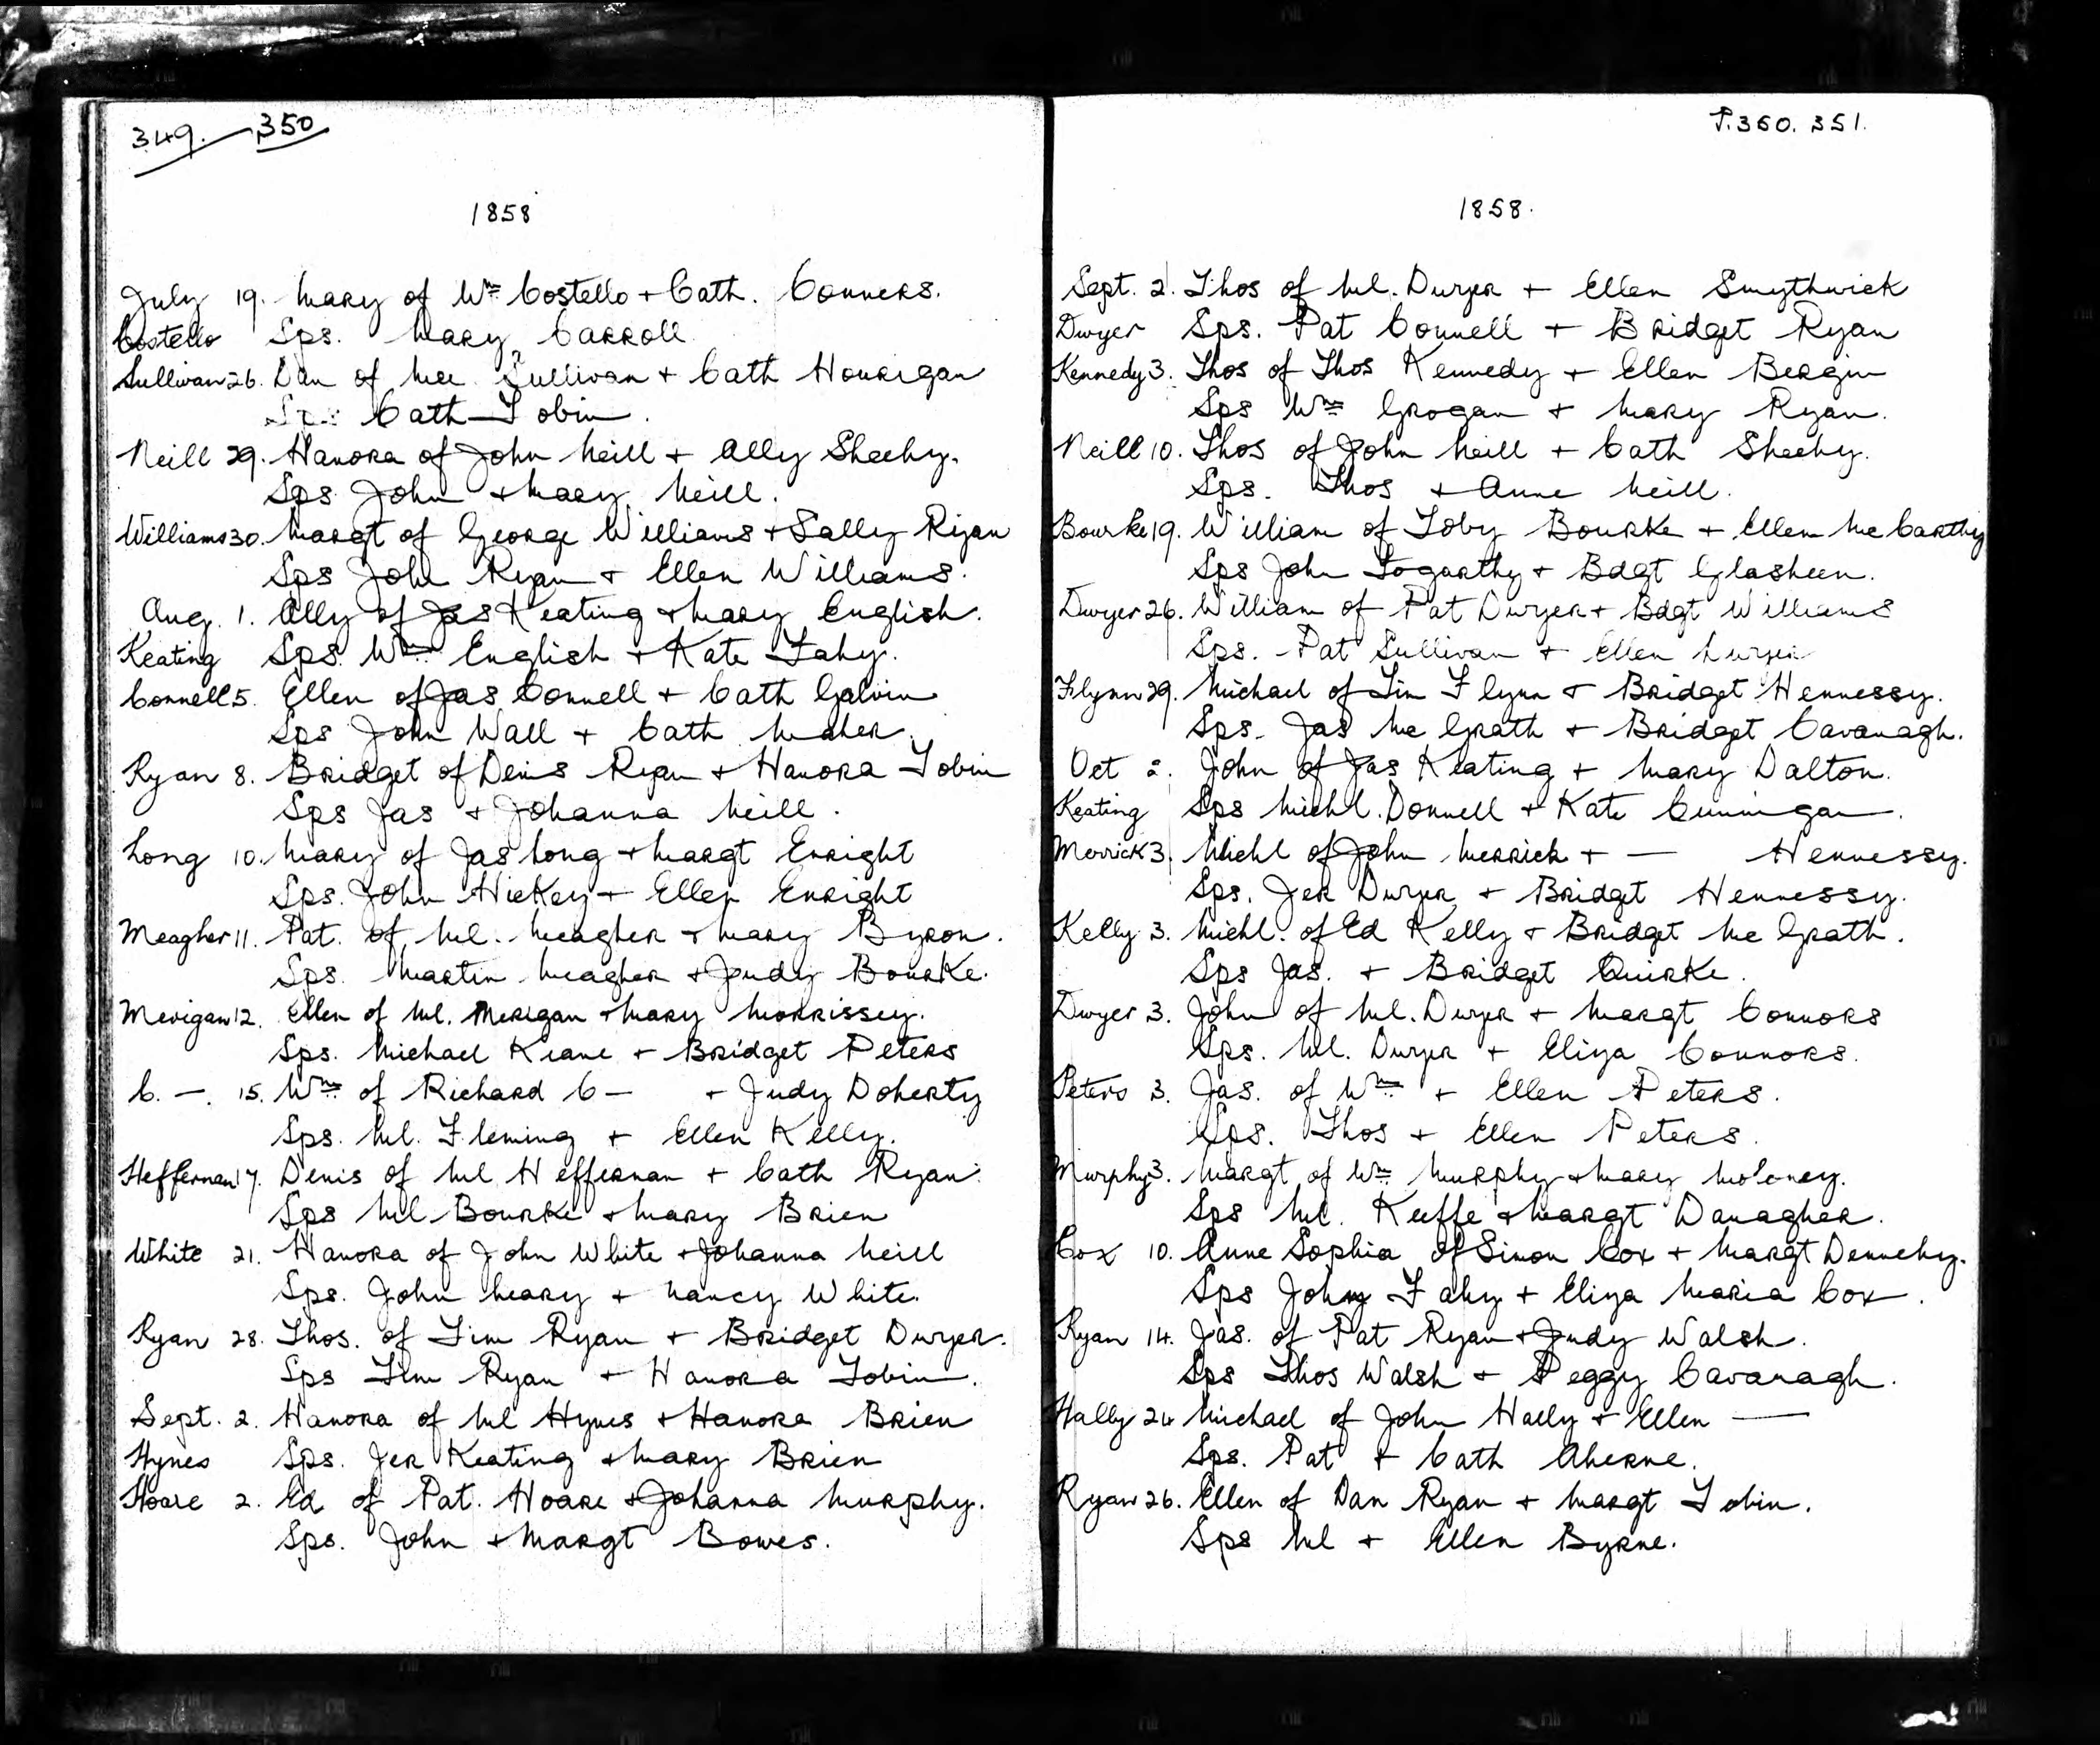 349. 350
1858
July 19. Mary of Wm Costello + Cath. Conners.
Costello Sps. Mary Carroll
Sullivan 26. Dan of Mce. Sullivan + Cath Hourigan
Sps Cath Tobin.
Neill 29. Hanora of John Neill + Ally Sheehy.
Sps John + Mary Neill.
Williams 30. Margt of George Williams + Sally Ryan
Sps John Ryan + Ellen Williams.
Aug. 1. Ally of Jas Keating + Mary English.
Keating Sps. Wm English + Kate Fahy.
Connell 5. Ellen of Jas Connell + Cath Galvin
Sps John Wall + Cath Maher.
Ryan 8. Bridget of Denis Ryan + Hanora Tobin
Sps Jas + Johanna Neill.
Long 10. Mary of Jas Long + Margt Enright
Sps. John Hickey + Ellen Enright
Meagher 11. Pat. of Ml. Meagher + Mary Byron.
Sps. Martin Meagher + Judy Bourke.
Merigan 12. Ellen of Ml. Merigan + Mary Morrissey.
Sps. Michael Keane + Bridget Peters
C. —. 15. Wm of Richard C — + Judy Doherty
Sps. Ml. Fleming + Ellen Kelly.
Heffernan 17. Denis of Ml Heffernan + Cath Ryan.
Sps Ml Bourke + Mary Brien
White 21. Hanora of John White + Johanna Neill
Sps. John Leary + Nancy White.
Ryan 28. Thos. of Tim Ryan + Bridget Dwyer.
Sps Tim Ryan + Hanora Tobin.
Sept. 2. Hanora of Ml Hynes + Hanora Brien
Hynes Sps. Jer Keating + Mary Brien
Hoare 2. Ed of Pat. Hoare + Johanna Murphy.
Sps. John + Margt Bowes.
P. 350. 351.
1858.
Sept. 2. Thos of Ml. Dwyer + Ellen Smythwick
Dwyer Sps. Pat Connell + Bridget Ryan
Kennedy 3. Thos of Thos Kennedy + Ellen Bergin
Sps Wm Grogan + Mary Ryan.
Neill 10. Thos of John Neill + Cath Sheehy.
Sps. Thos + Anne Neill.
Bourke 19. William of Toby Bourke + Ellen McCarthy
Sps John Fogarthy + Bdgt Glasheen.
Dwyer 26. William of Pat Dwyer + Bdgt Williams
Sps. Pat Sullivan + Ellen Dwyer
Flynn 29. Michael of Tim Flynn + Bridget Hennessy.
Sps. Jas McGrath + Bridget Cavanagh.
Oct 2. John of Jas Keating + Mary Dalton.
Keating Sps Michl. Donnell + Kate Cunnigan.
Merrick 3. Michl of John Merrick + — Hennessy.
Sps. Jer Dwyer + Bridget Hennessy.
Kelly 3. Michl. of Ed Kelly + Bridget McGrath.
Sps Jas. + Bridget Quirke.
Dwyer 3. John of Ml. Dwyer + Margt Connors
Sps. Ml. Dwyer + Eliza Connors.
Peters 3. Jas. of Wm + Ellen Peters.
Sps. Thos + Ellen Peters.
Murphy 3. Margt of Wm Murphy + Mary Moloney.
Sps Ml. Keeffe + Margt Danagher.
Cox 10. Anne Sophia of Simon Cox + Margt Dennehy.
Sps John Fahy + Eliza Maria Cox.
Ryan 14. Jas. of Pat Ryan + Judy Walsh.
Sps Thos Walsh + Peggy Cavanagh.
Hally 24 Michael of John Hally + Ellen —
Sps. Pat + Cath Aherne.
Ryan 26. Ellen of Dan Ryan + Margt Tobin.
Sps Ml + Ellen Byrne.